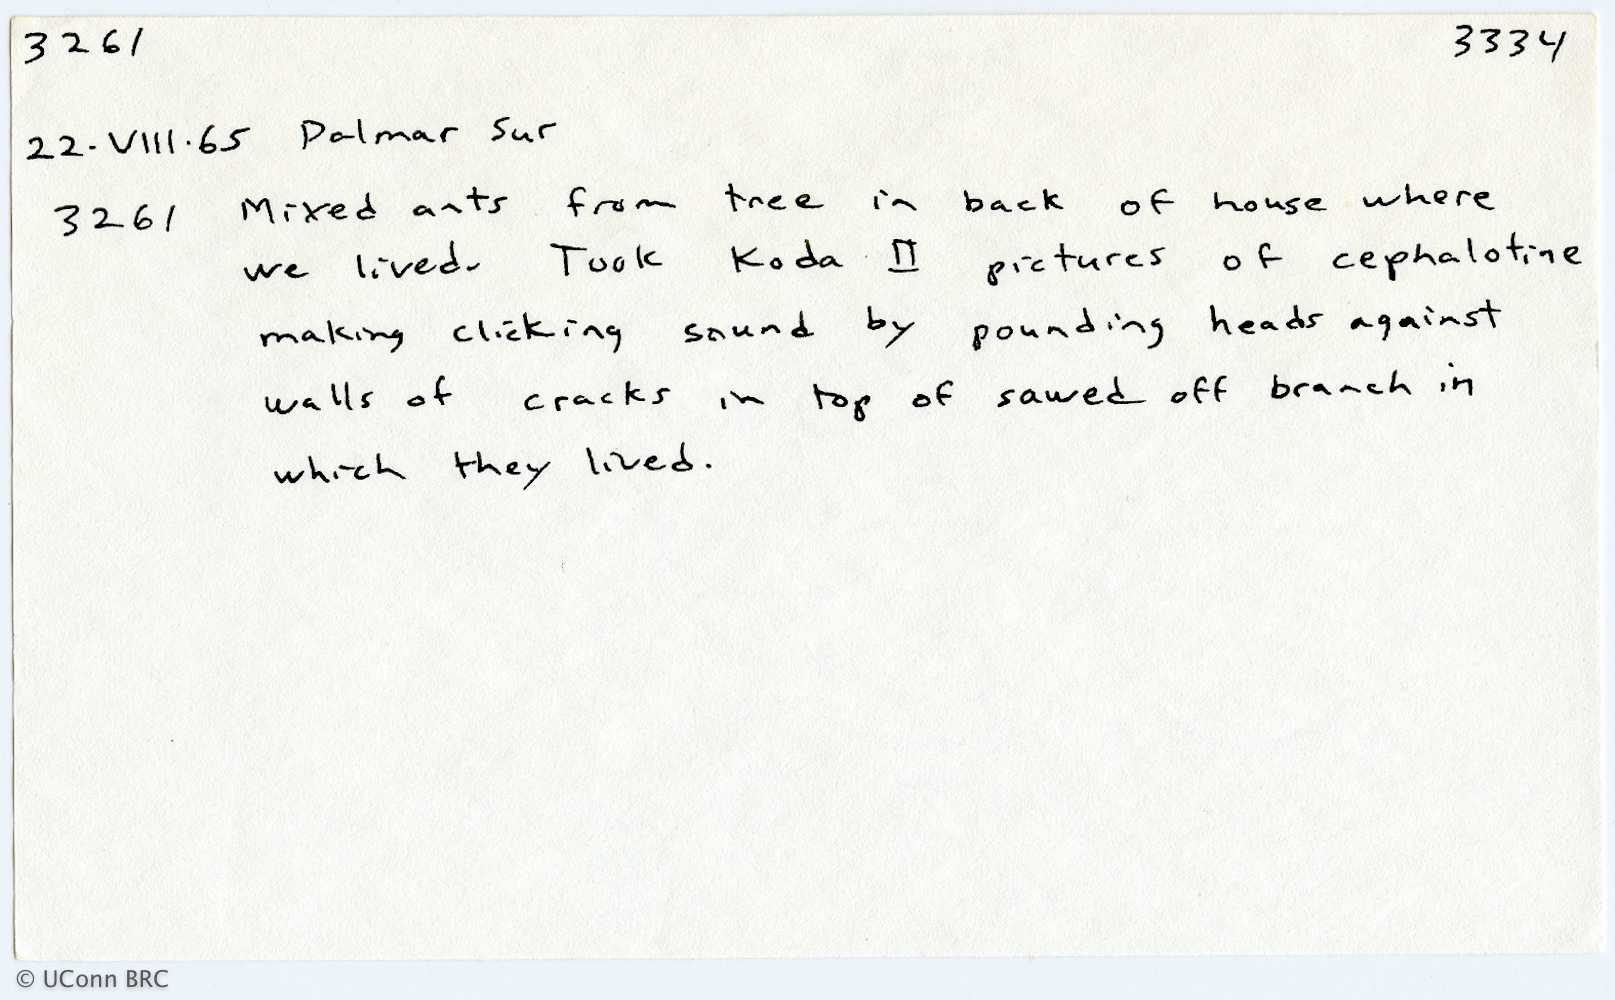 3261 3334
22.VIII.65 Palmar Sur
3261 Mixed ants from tree in back of house where
we lived. Took Koda II pictures of cephalotine
making clicking sound by pounding heads against
walls of cracks in top of sawed off branch in
which they lived.
© UConn BRC